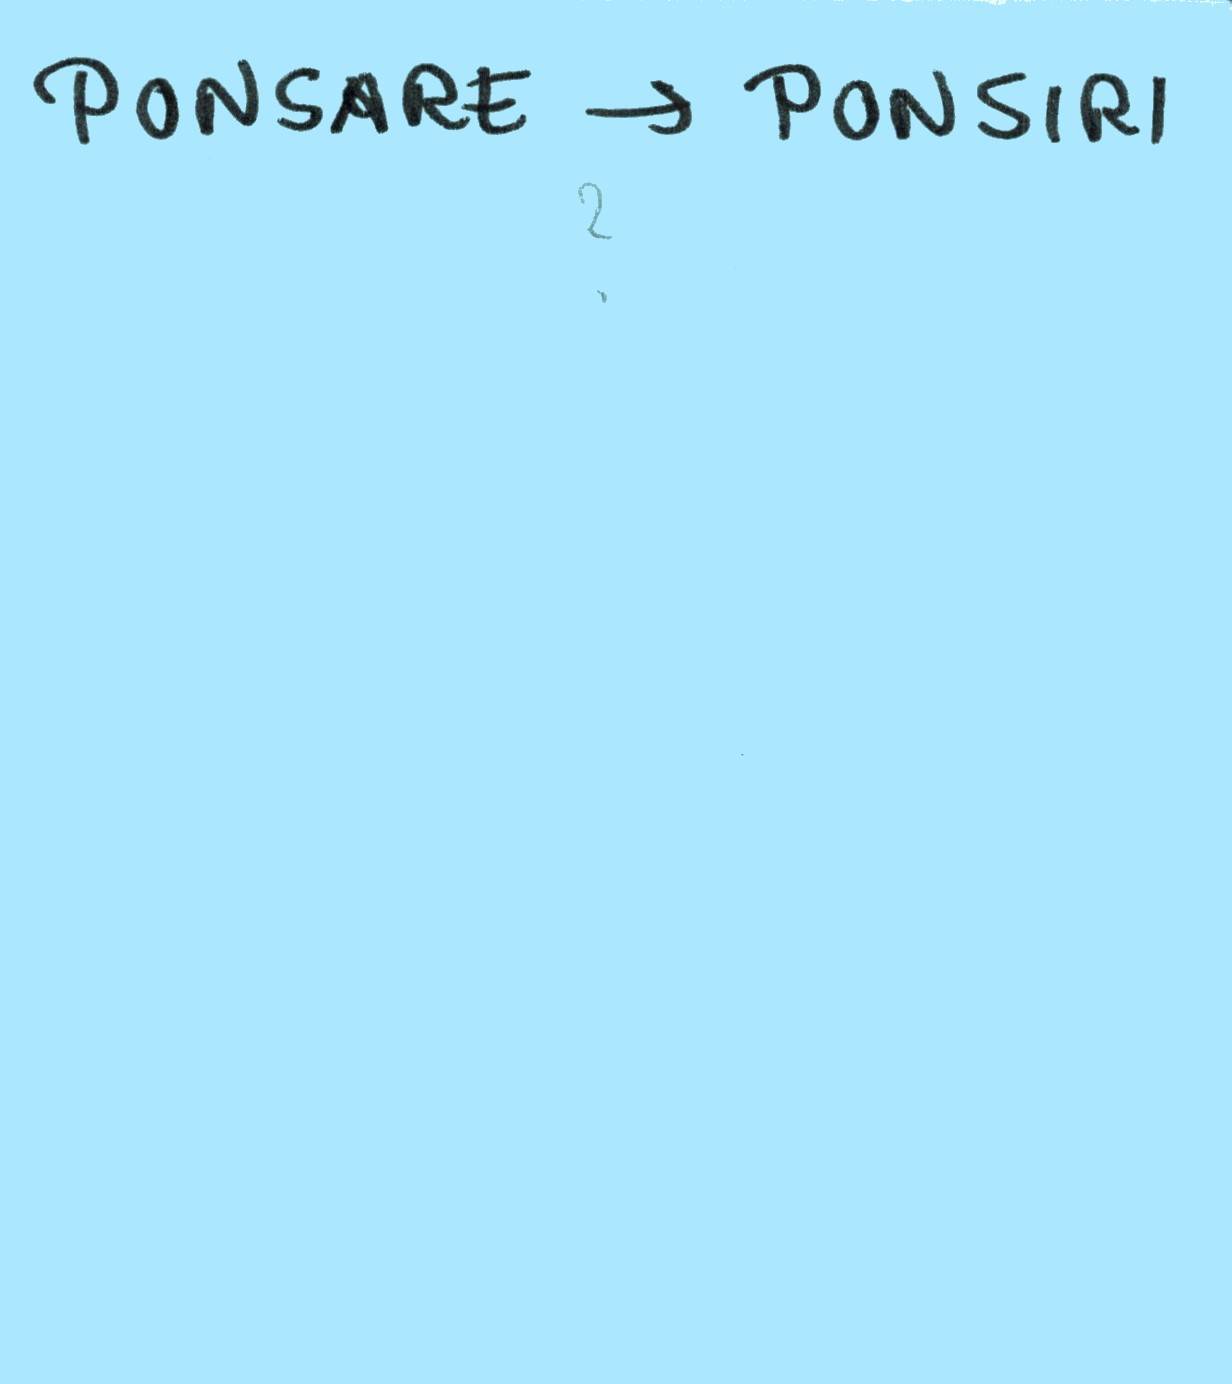 PONSARE → PONSIRI
?